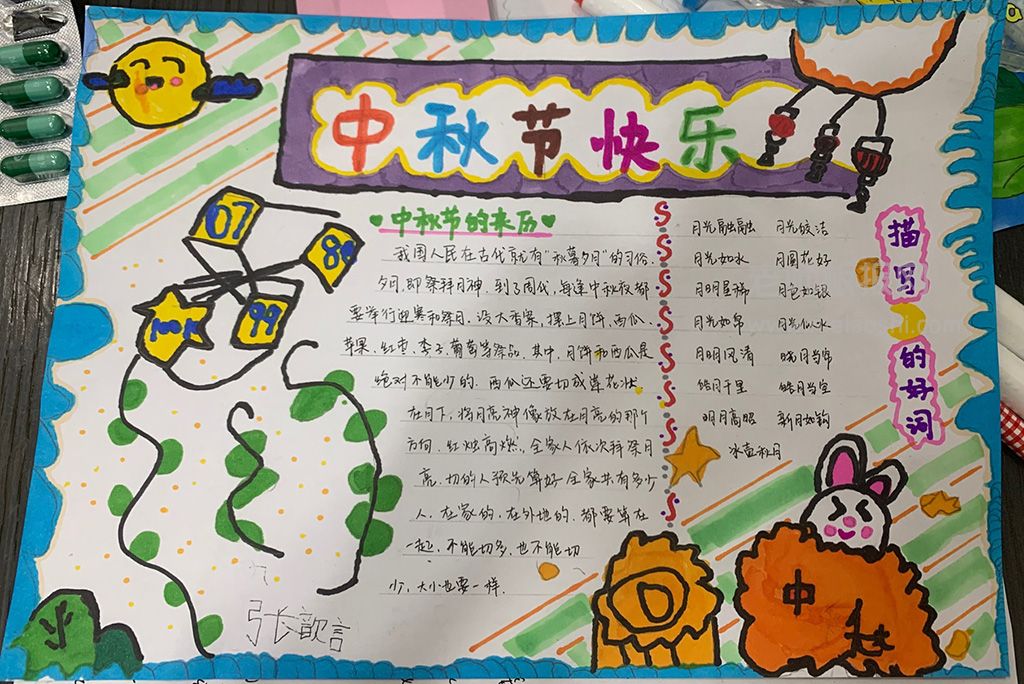 中秋节快乐
07
80
99
中秋节的来历
我国人民在古代就有"秋暮夕月"的习俗.
夕月,即祭拜月神.到了周代,每逢中秋夜都
要举行迎寒和祭月.设大香案,摆上月饼、西瓜、
苹果、红枣、李子、葡萄等祭品.其中,月饼和西瓜是
绝对不能少的.西瓜还要切成莲花状
在月下,将月亮神像放在月亮的那个
方向,红烛高燃.,全家人依次拜祭月
亮,切的人预先算好全家共有多少
人,在家的,在外地的,都要算在
一起,不能切多,也不能切
少,大小也要一样.
描写的好词
月光融融 月光皎洁
月光如水 月圆花好
月明星稀 月色如银
月光如帛 月光似水
月明风清 皓月当席
皓月千里 皓月当空
明月高照 新月如钩
冰壶秋月
中秋
张歆言